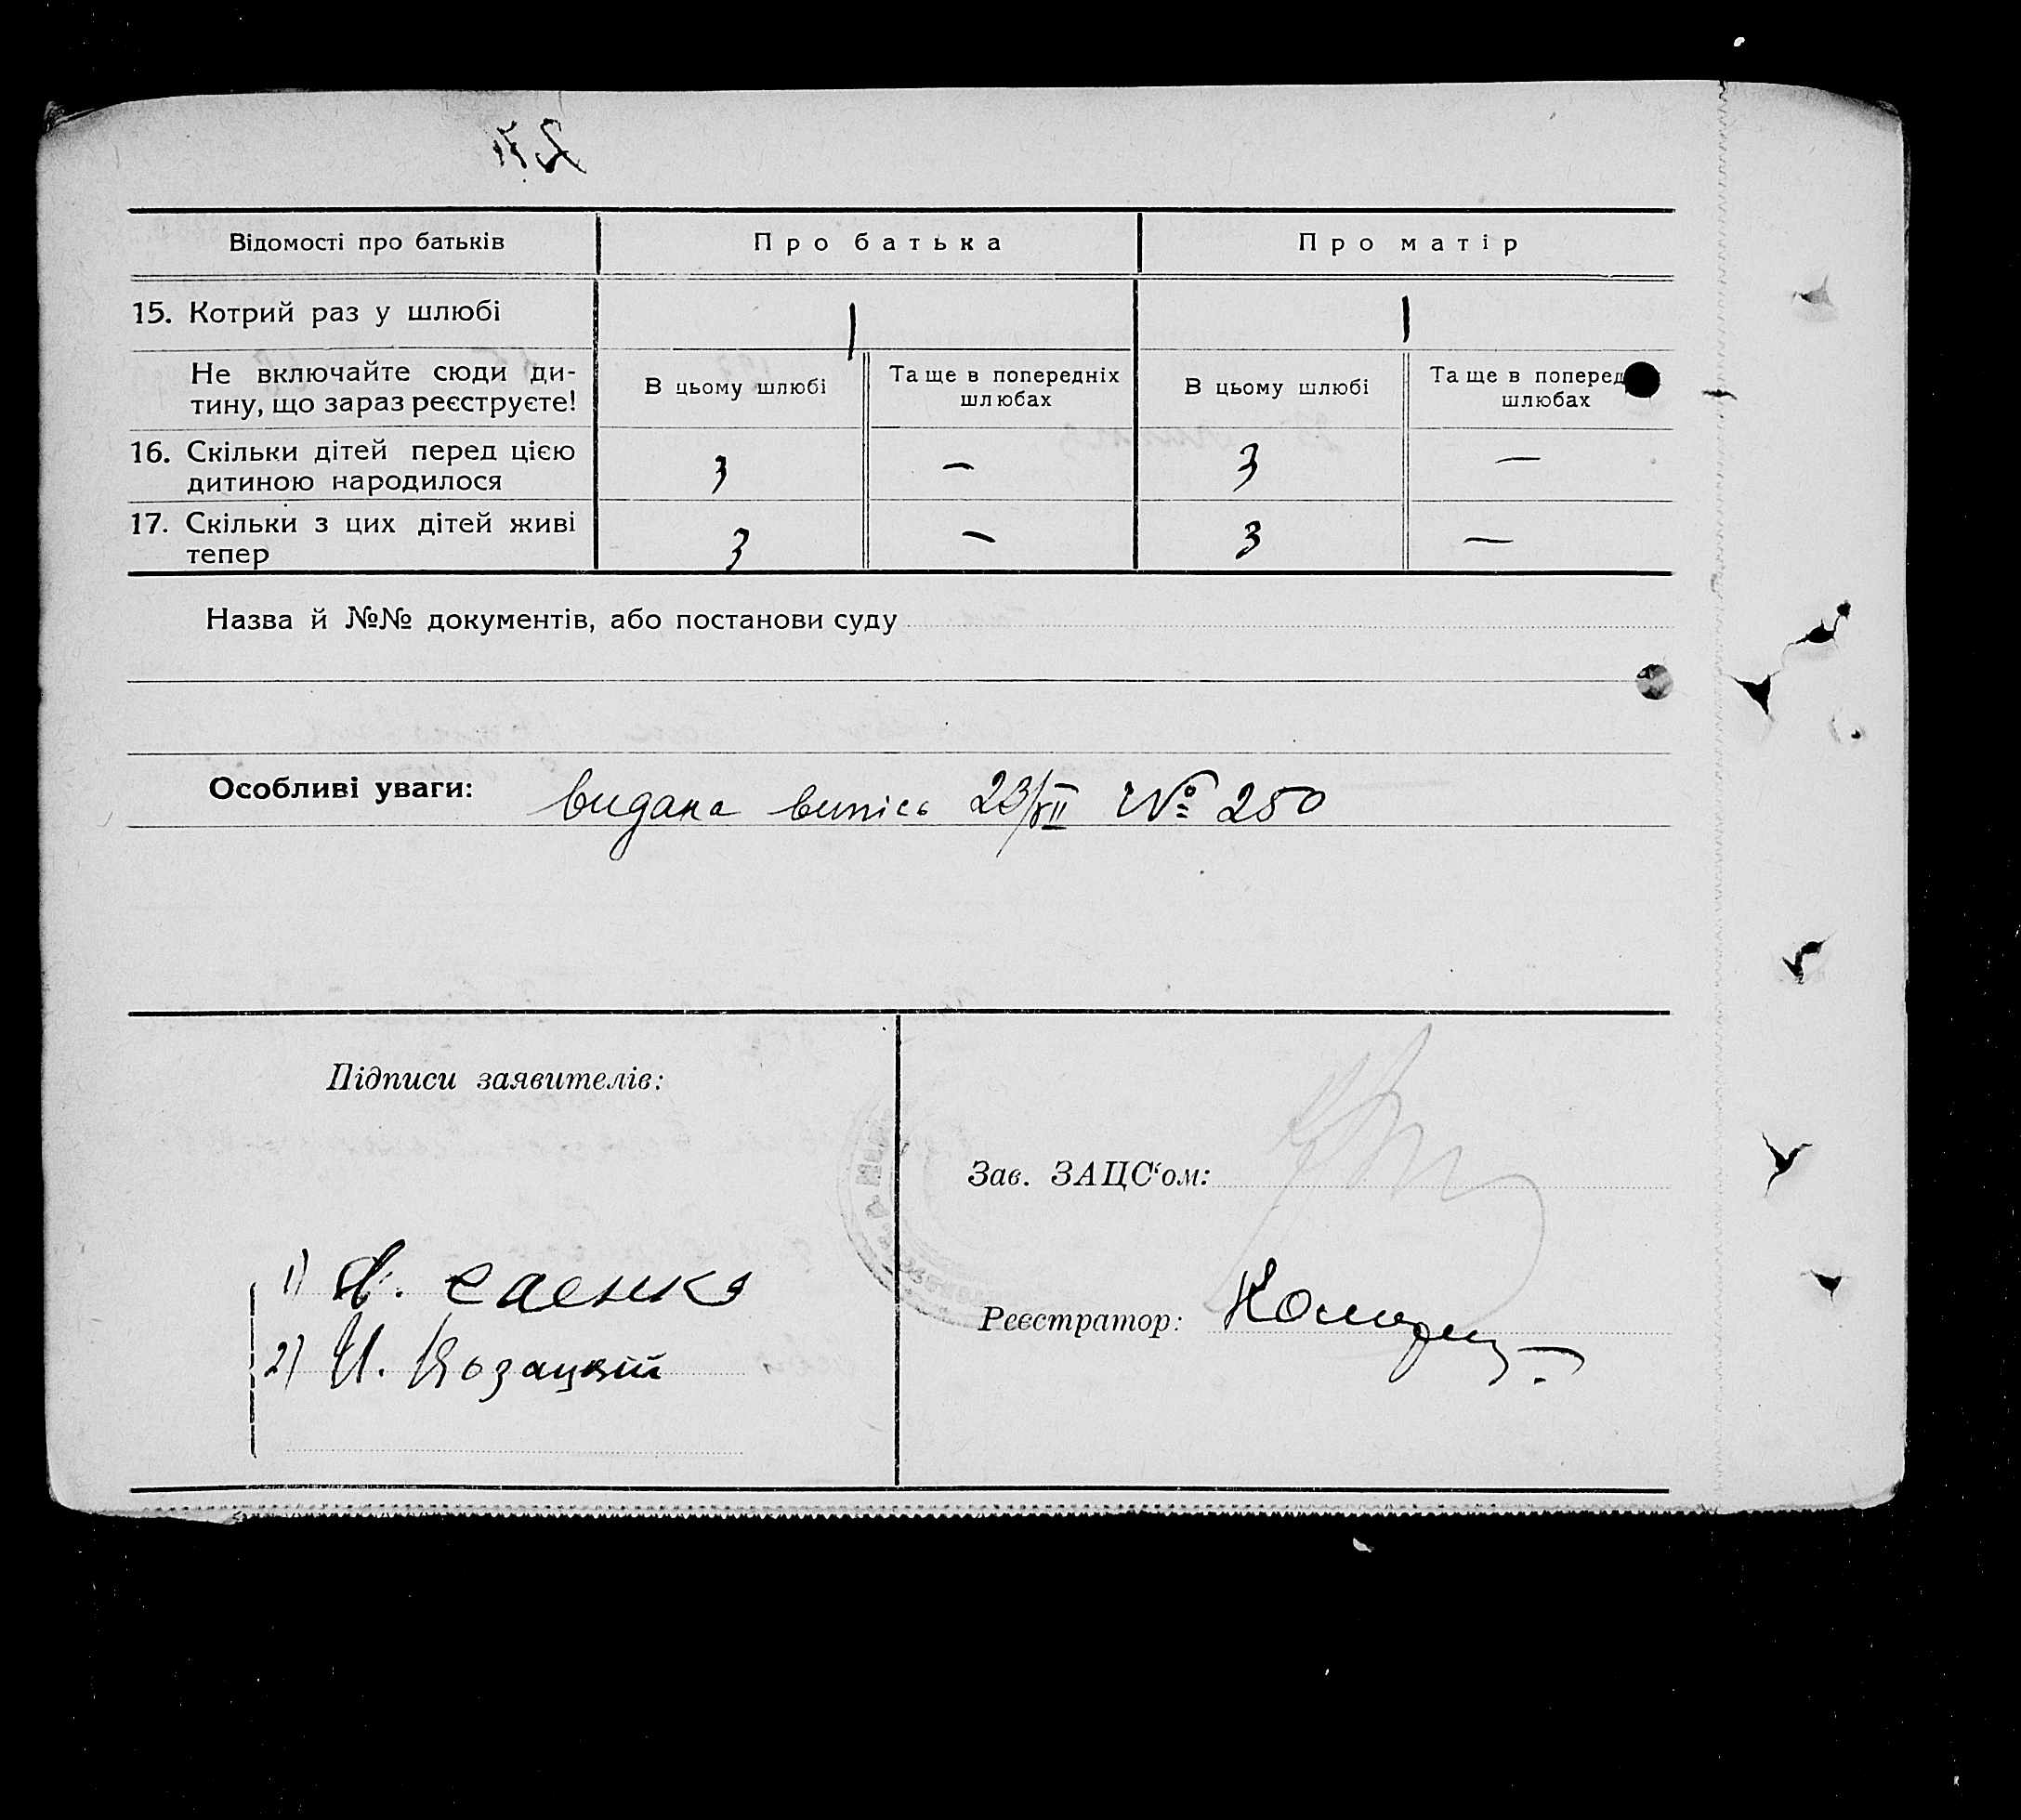 Відомості про батьків Про батька Про матір
15. Котрий раз у шлюбі 1 1
Не включайте сюди ди-
тину, що зараз реєструєте!
В цьому шлюбі
Та ще в попередніх
шлюбах
В цьому шлюбі
Та ще в поперед
шлюбах
16. Скільки дітей перед цією
дитиною народилося
3 – 3 –
17. Скільки з цих дітей живі
тепер
3 – 3 –
Назва й №№ документів, або постанови суду
Особливі уваги: видана випісь 23/XII № 250
Підписи заявителів:
Зав. ЗАЦС‘ом:
1) Саєнко
2) И. Козацкій
Реєстратор: